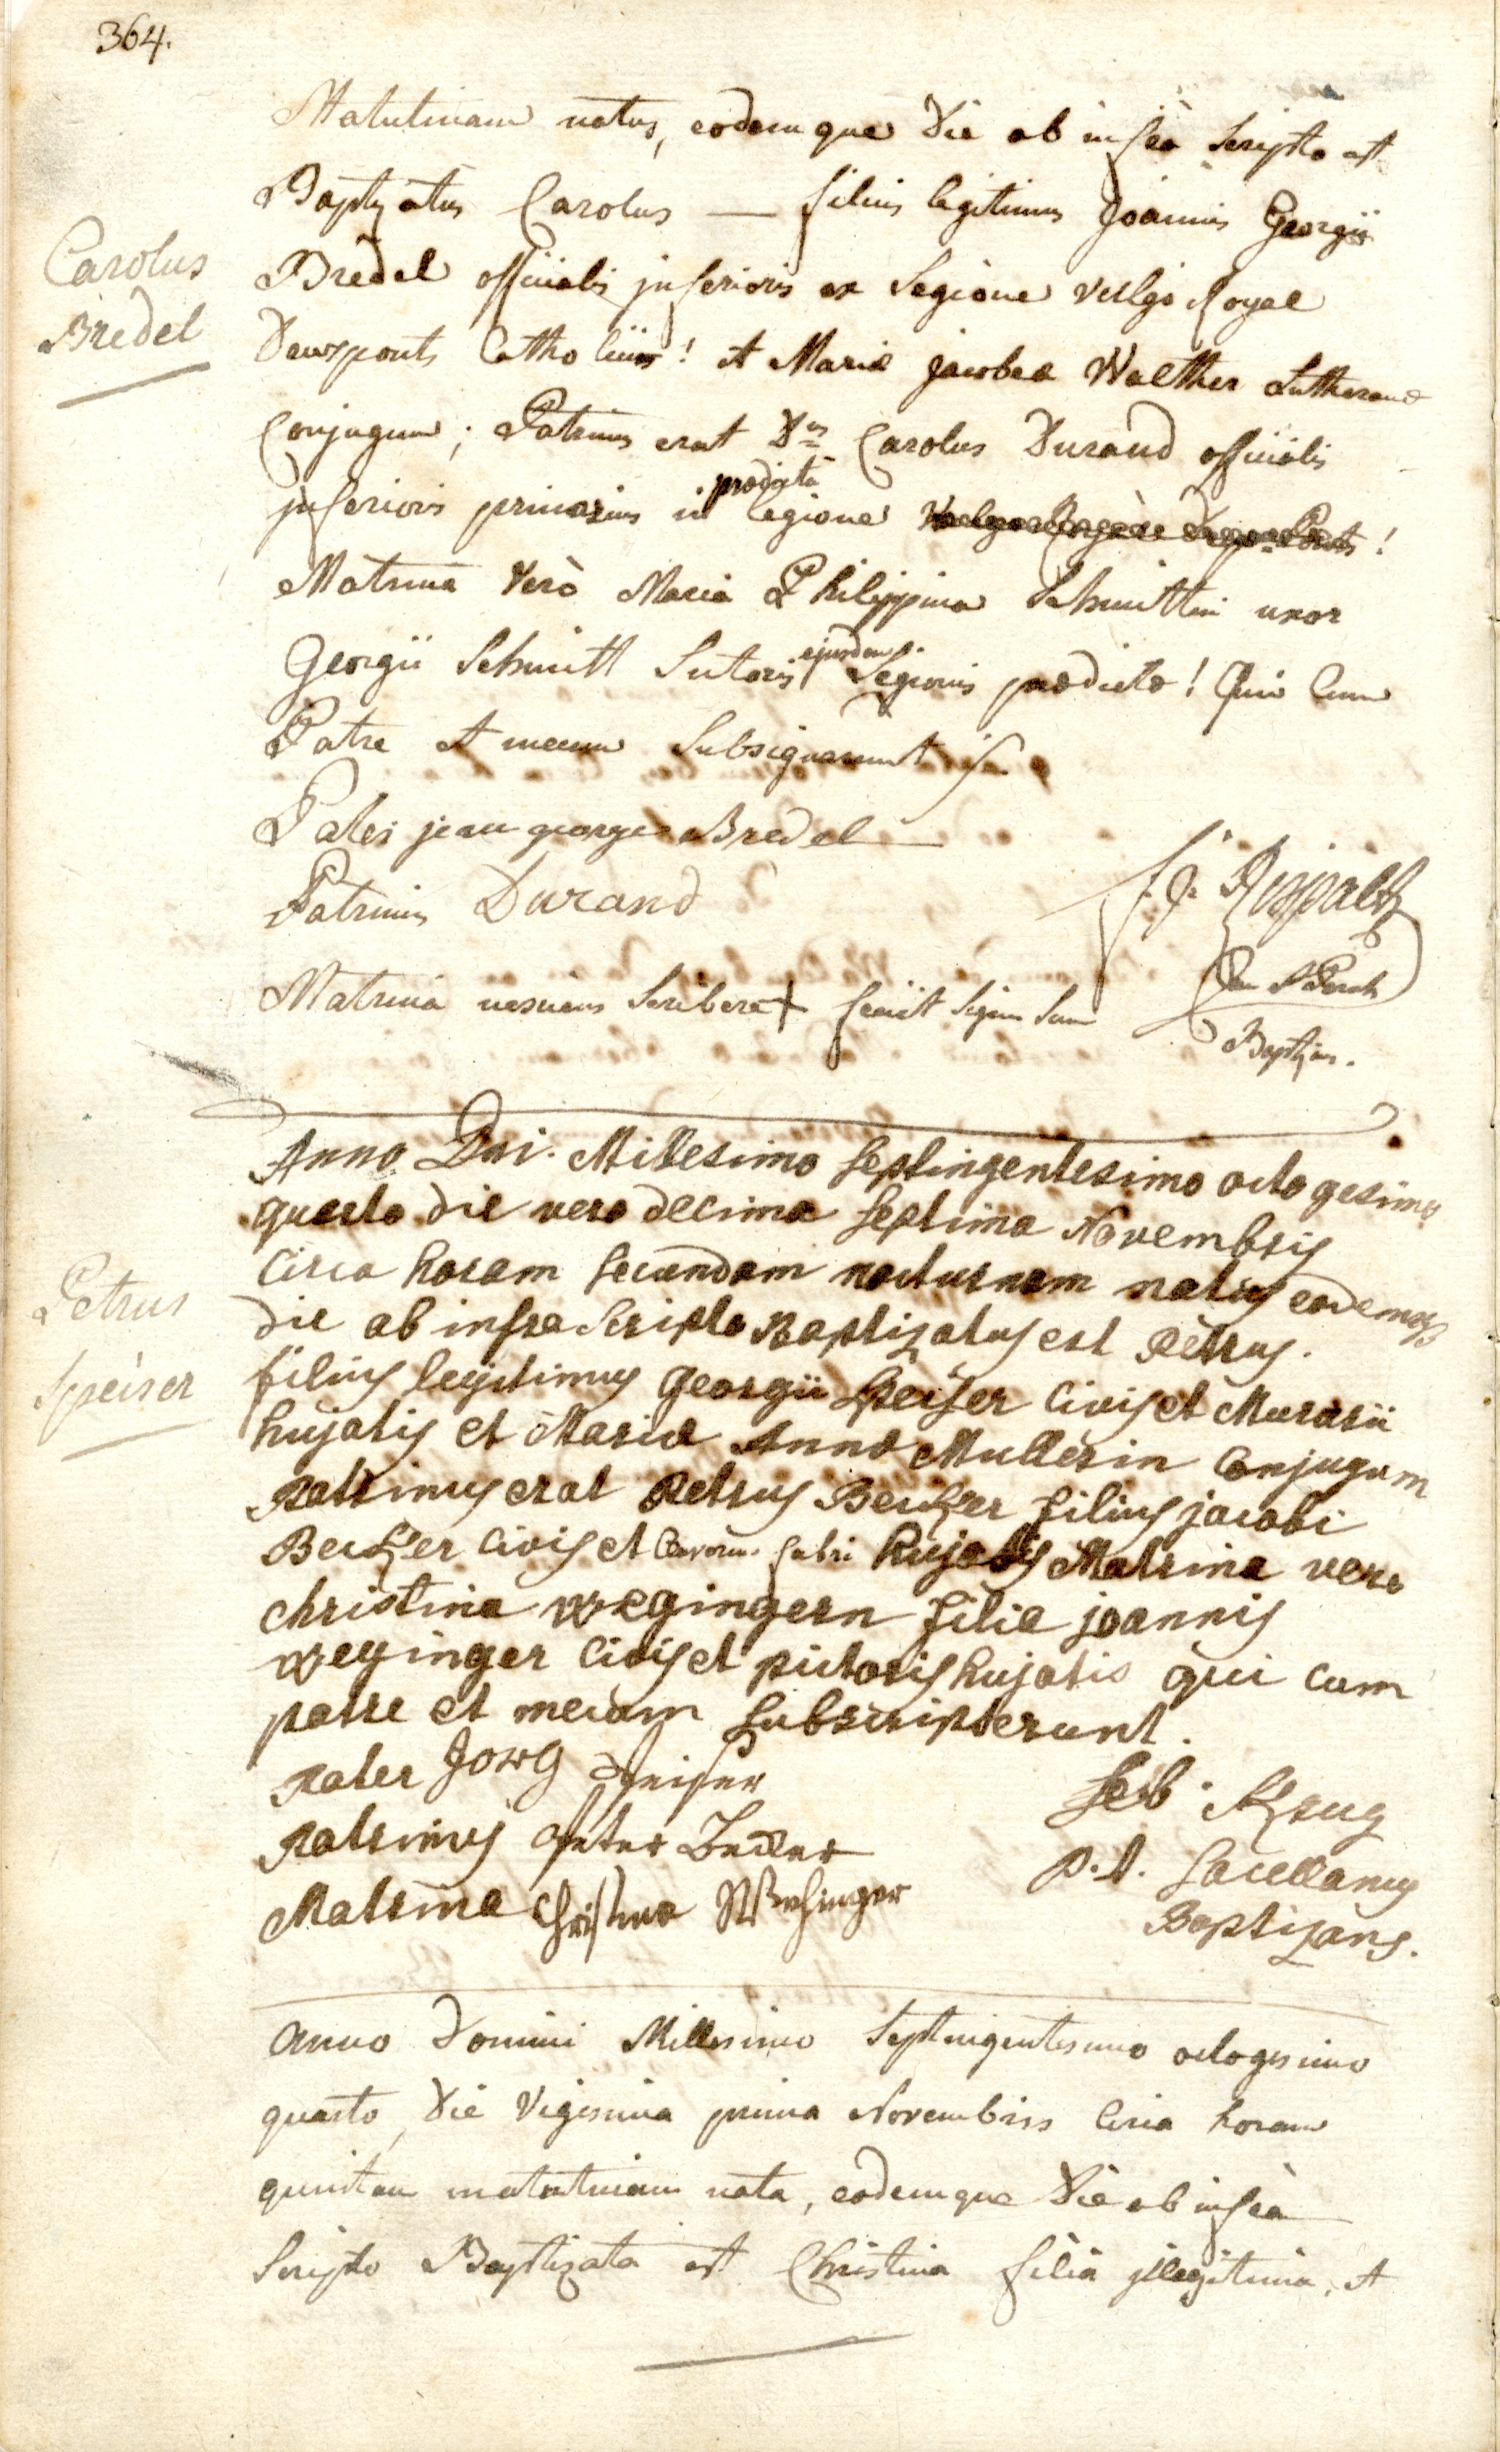 364.
Matutinam natus, eodemque Die ab infra Scripto est
Baptizatus Carolus — filius legitimus Joannis Georgii
Carolus
Bredel
Bredel officialis inferioris ex Legione vulgo Royal
Deuxponts Catholici! et Mariæ Jacobeæ Walther Lutheranæ
Conjugum; Patrinus erat Dus Carolus Durand officialis
inferioris primarius in prædicta legione !
Matrina verò Maria Philippina Schmittin uxor
Georgii Schmitt Sutoris ejusdem Legionis prædictæ! Qui Cum
Patre et mecum Subsignarunt
Pater jean george Bredel
Patrinus Durand
Matrina nesciens Scribere + fecit Signum Suum
Baptizans.
Anno Dni. Millesimo Septingentesimo octogesimo
quarto die vero decima Septima Novembris
Circa horam Secundam nocturnam natus eodemq
Petrus
Speiser
die ab infra Scripto Baptizatus est Petrus.
filius legitimus Georgii Speiser Civis et Murarii
hujatis et Mariæ Annæ Mullerin Conjugum
Patrinus erat Petrus Becker filius jacobi
Becker Civis et Clavorum fabri hujatis Matrina vero
Christina Weginger filia joannis
Weginger Civis et pictoris hujatis qui Cum
patre et mecum Subscripserunt.
Pater Jorg Speiser
Patrinus Peter Becker
Matrina Christina
Seb. Krug
p.t. Sacellanus
Baptizans.
Anno Domini Millesimo Septingentesimo octogesimo
quarto, Die Vigesima prima Novembris Circa horam
quintam matutinam nata, eodemque Die ab infra
Scripto Baptizata est Christina filia jllegitima, et